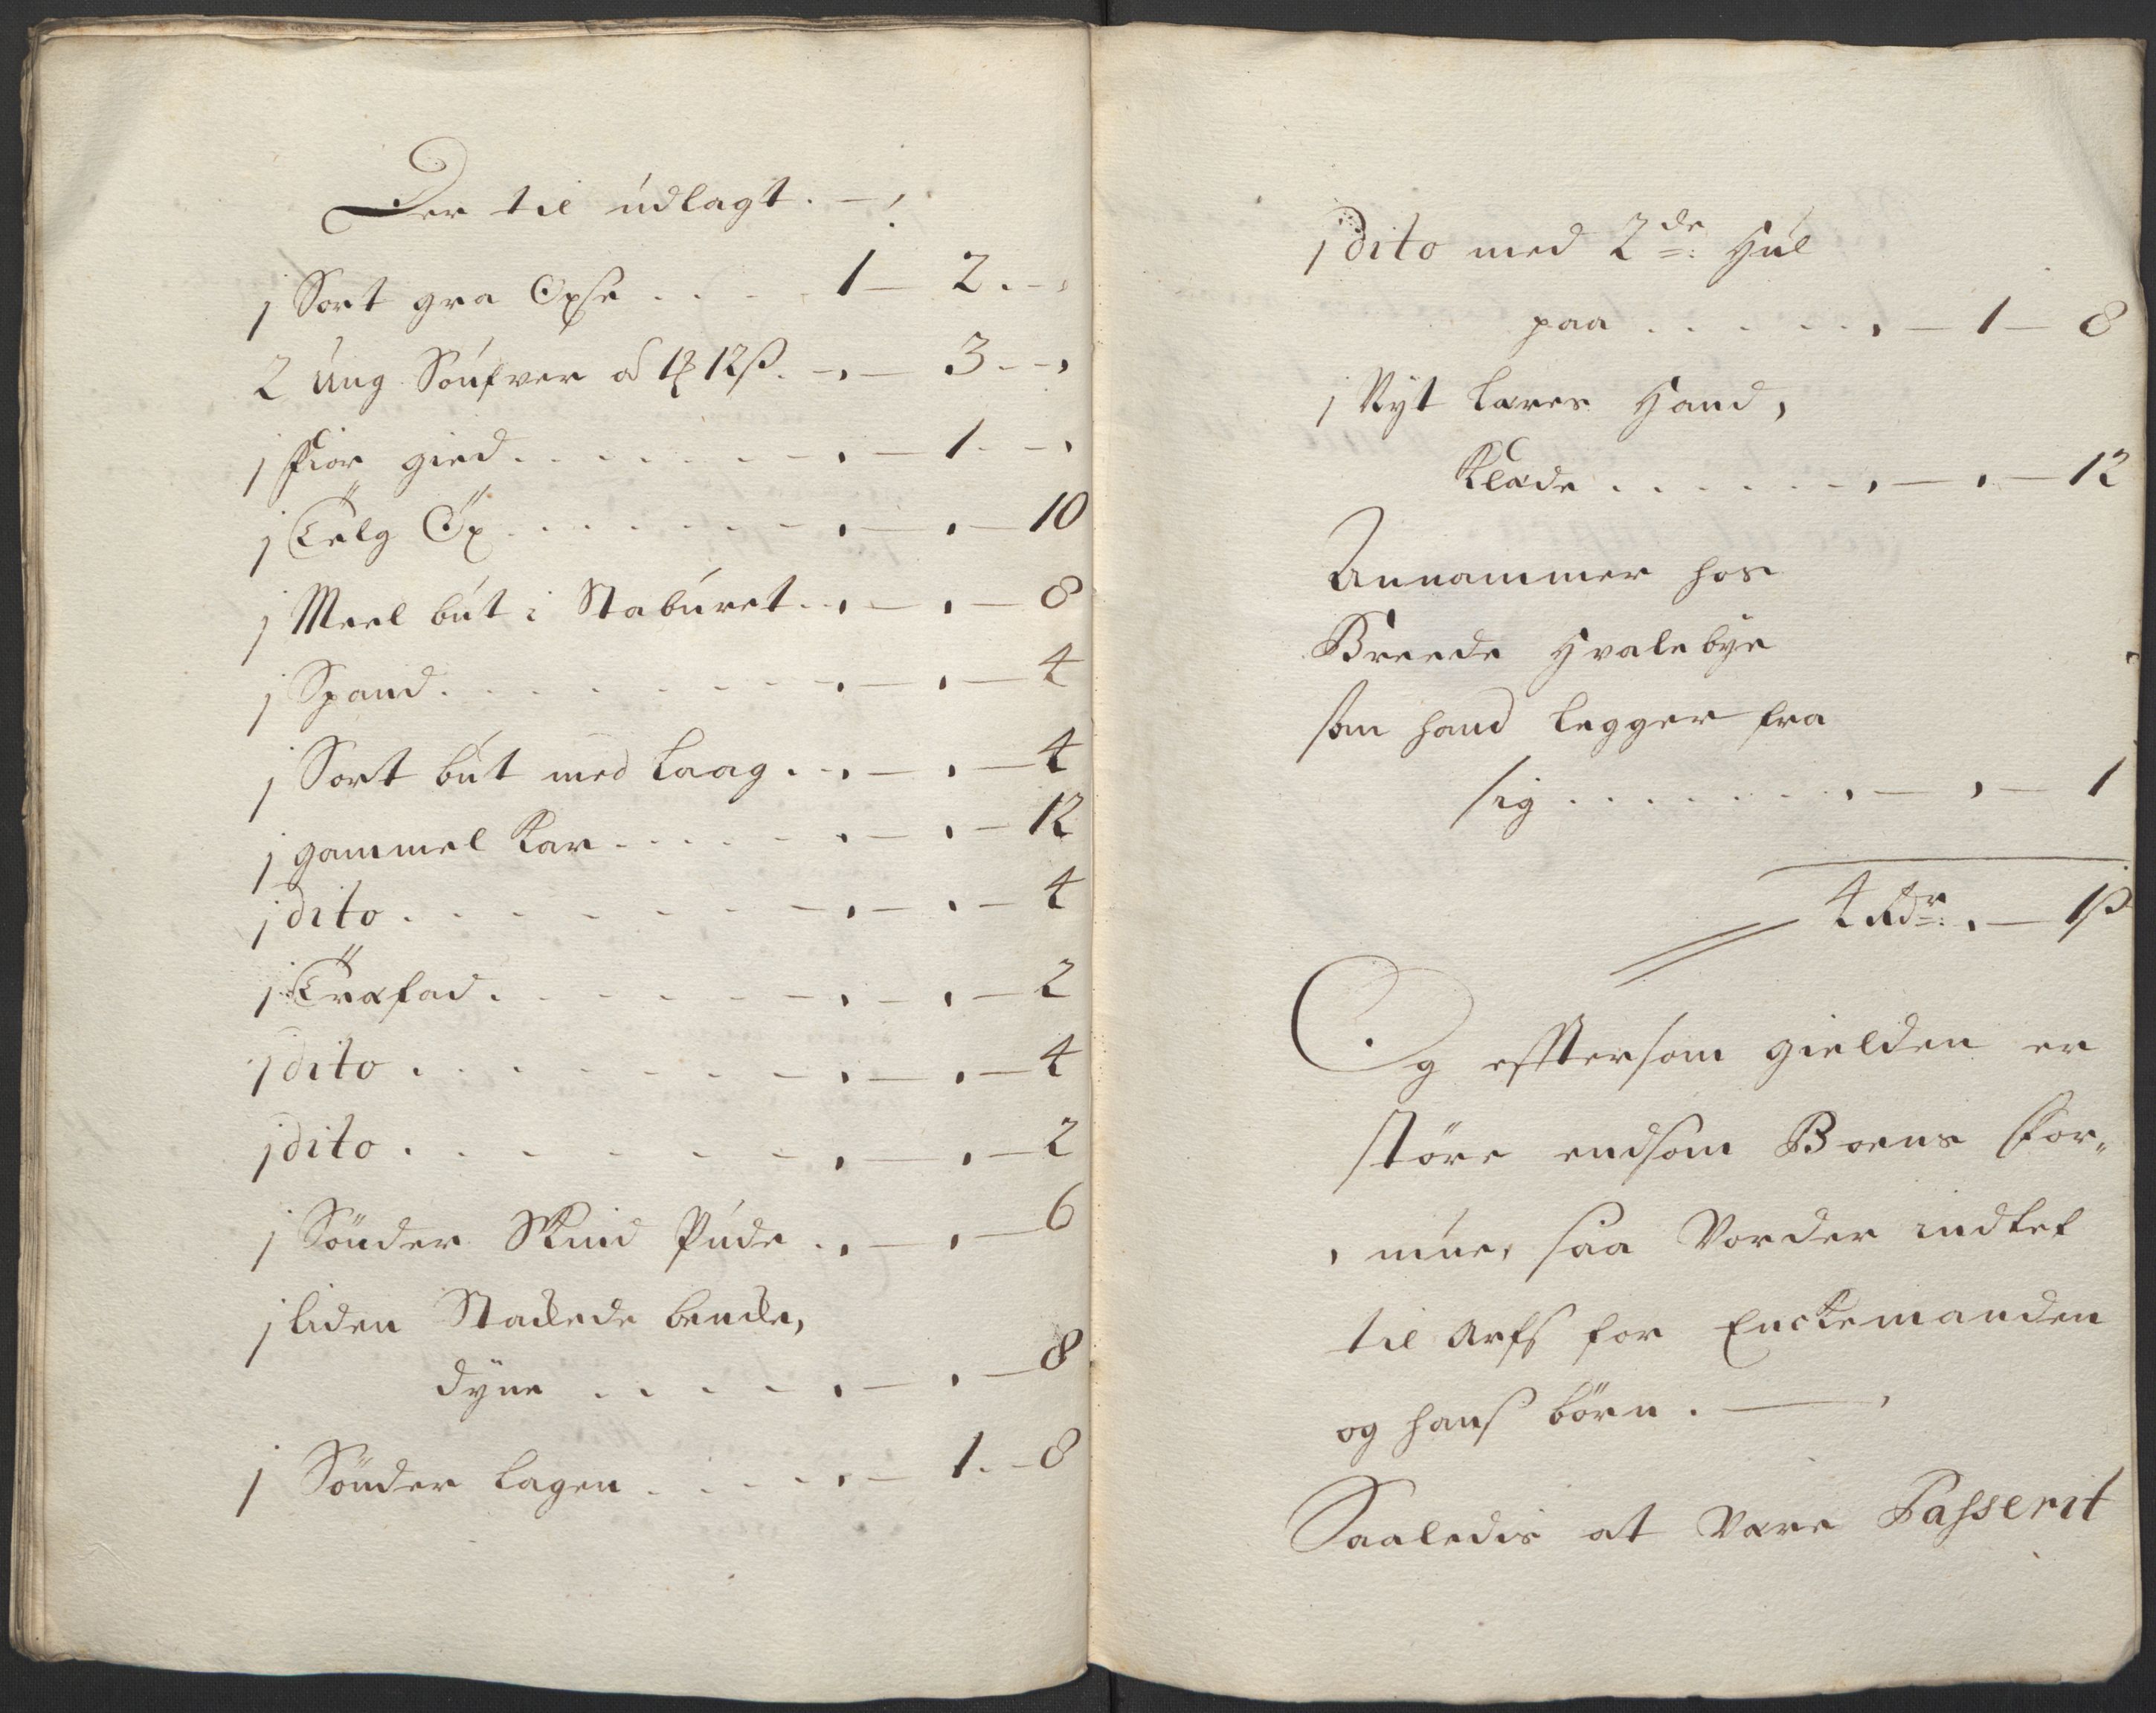 Der til udlagt. — ,
1 Sort graa Oxse . . . . 1 — 2 . - ,
2 Ung Soufver à 1 ₰ 12 ß. - , — 3 . - ,
1 fior gied . . . . . . . , — 1 . - ,
1 Tælg Öx . . . . . . . , — , — 10
1 Meel but i Staburet . . , — , — 8
1 Spand . . . . . . . . , — , — 4
1 Sort but med Laag . . , — , — 4
1 gammel Kar . . . . . , — , — 12
1 dito . . . . . . . . , — , — 4
1 Træfad . . . . . . . , — , — 2
1 dito . . . . . . . . , — , — 4
1 dito . . . . . . . . , — , — 2
1 Sönder Skind Pude . , — , — 6
1 liden Stackede bencke,
dyne . . . . . , — , — 8
1 Sönder Lagen . . . . , — 1 . - 8
1 dito med 2de Hul
paa . . . . . . , — 1 — 8
1 Nyt Læres Hand,
Klæde . . . . . . , — , — 12
Annammer hos
Breede Hvalebye
som hand legger fra
sig . . . . . . . , — , — 1
4 Rdr , — 1 ß
Og efftersom gielden er
störe endsom Boens For„
, mue, saa Vorder indtet
til Arfs for Enckemanden
og hans börn . — ,
Saaledis at Være Passerit